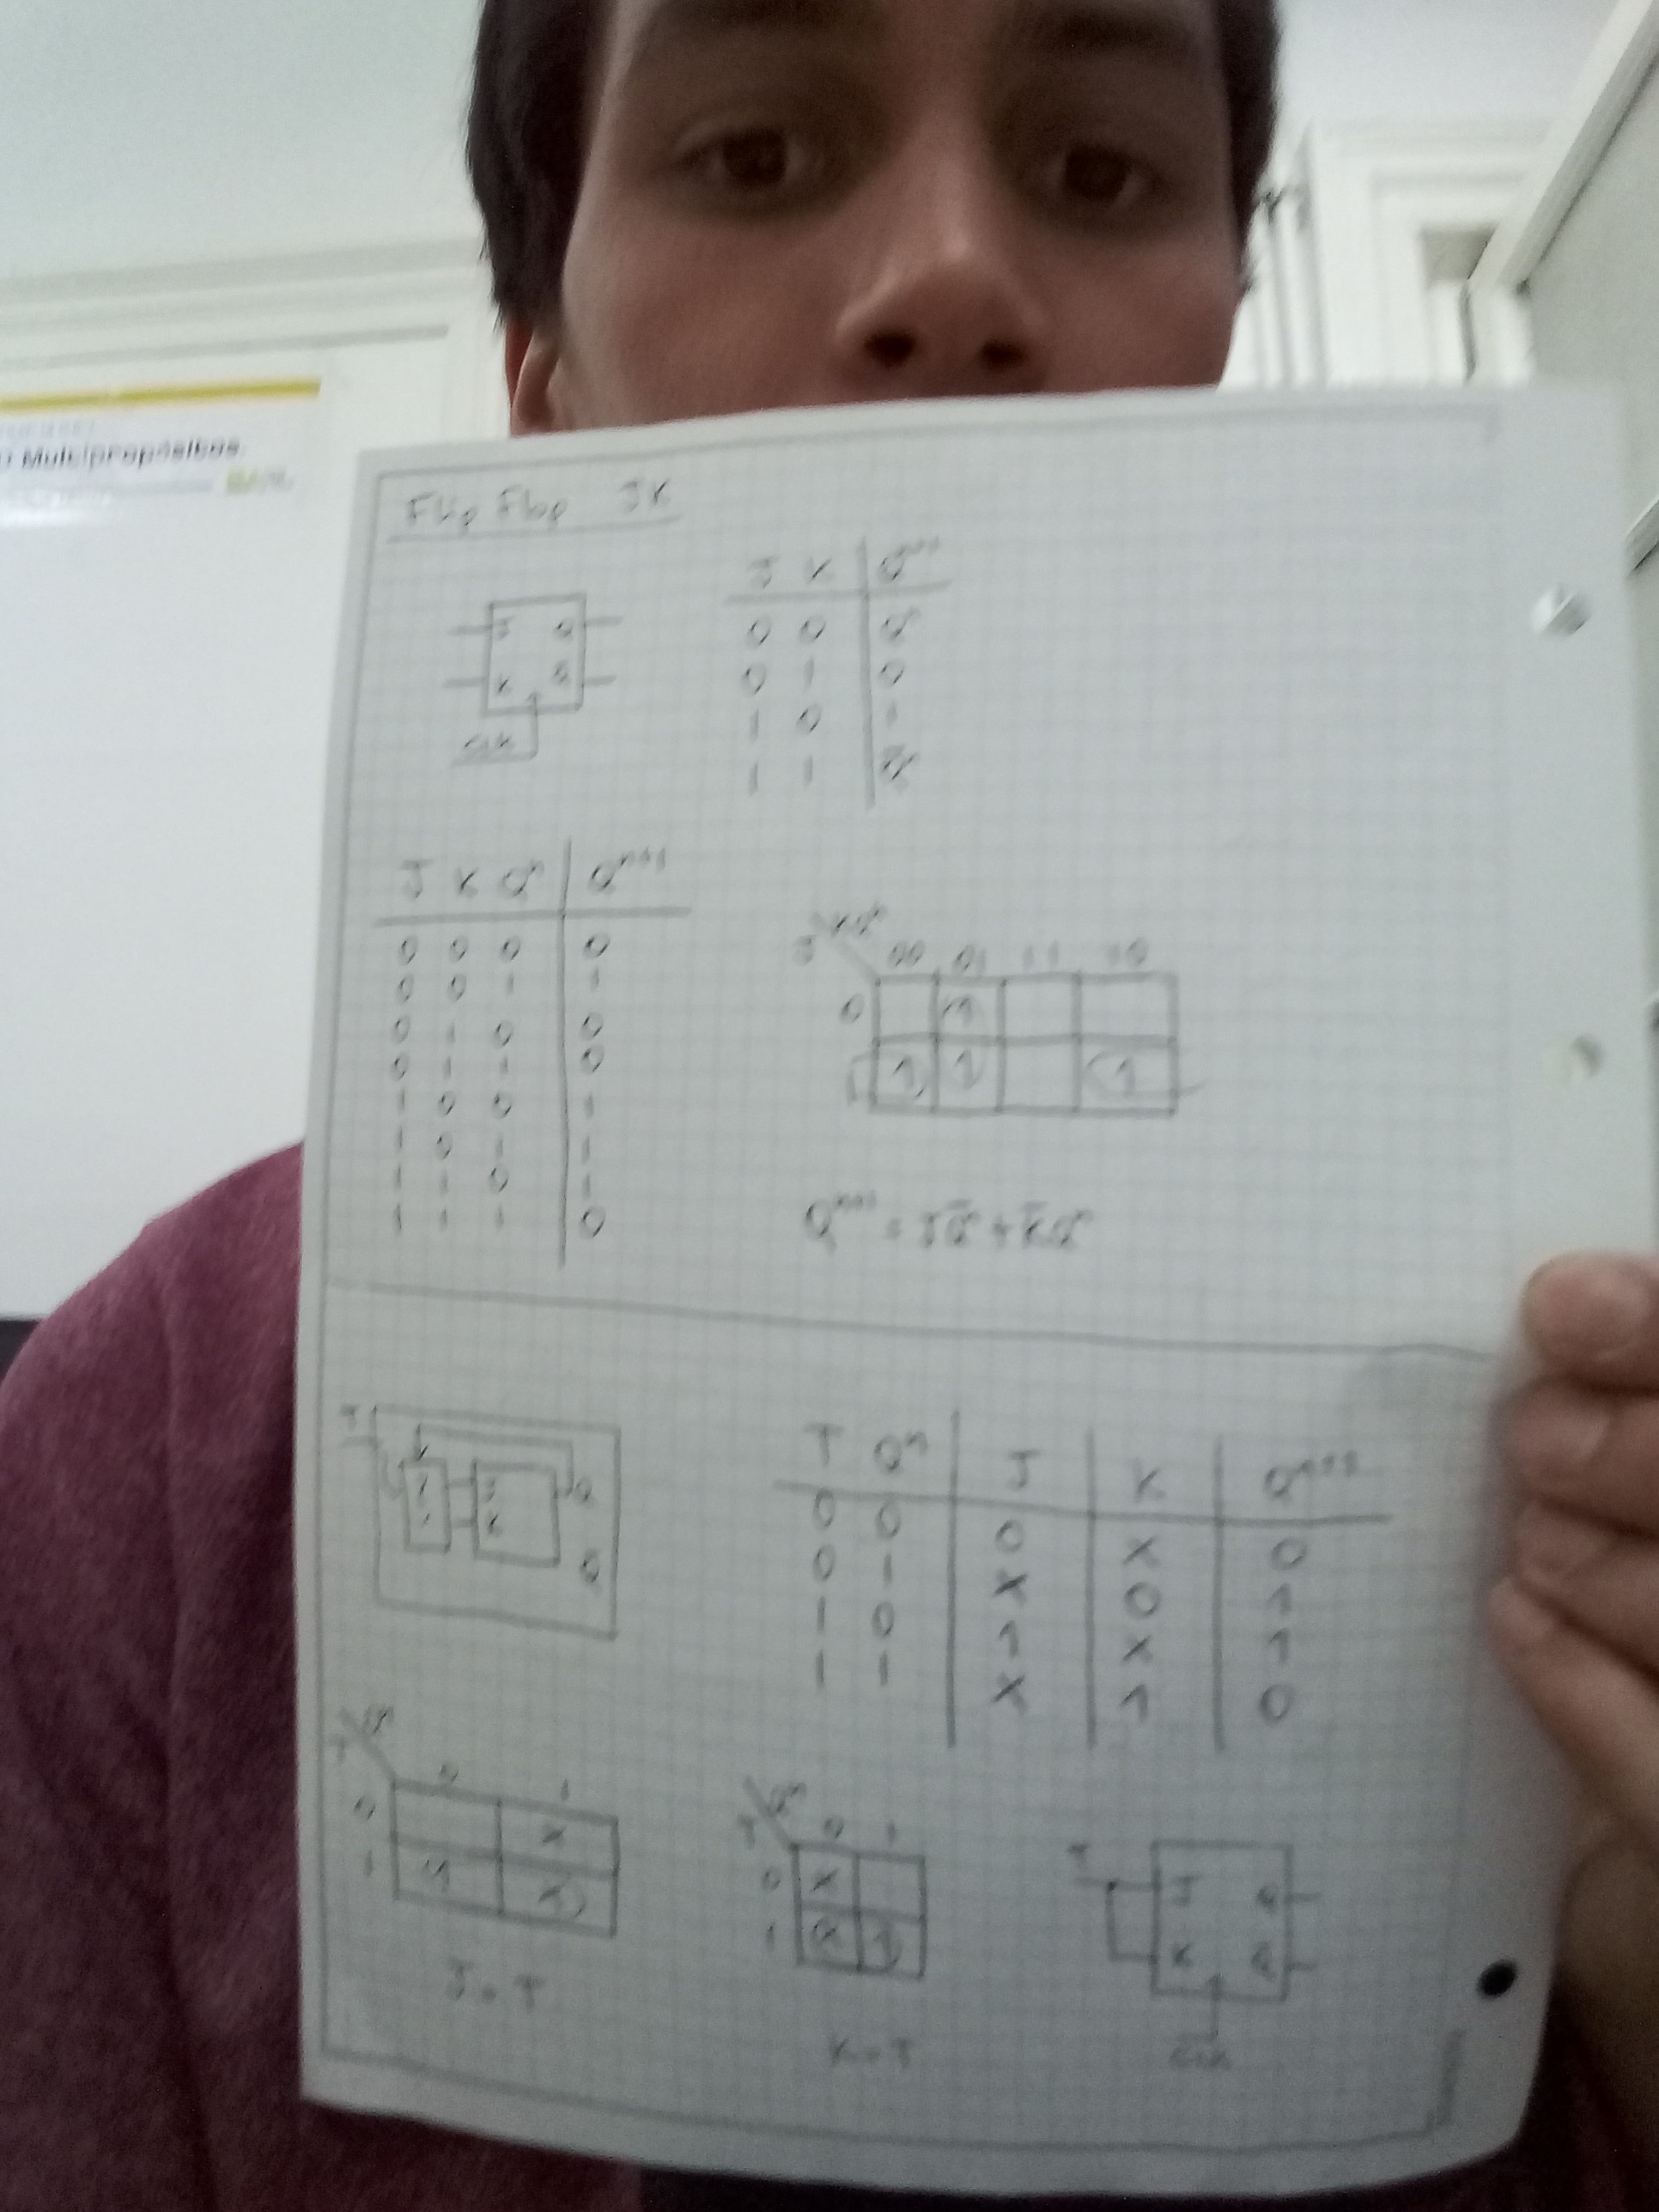 Multipropósitos
Flip Flop JK
J K Q^{n+1}
0 0 Q^n
0 1 0
1 0 1
1 1 Q̅^n
J Q
K Q̅
CLK
J K Q^n Q^{n+1}
0 0 0 0
0 0 1 1
0 1 0 0
0 1 1 0
1 0 0 1
1 0 1 1
1 1 0 1
1 1 1 0
J KQ^n 00 01 11 10
0 1
1 1 1 1
Q^{n+1} = JQ̅^n + K̅Q^n
T
? J Q
? K
Q̅
T Q^n J K Q^{n+1}
0 0 0 X 0
0 1 X 0 1
1 0 1 X 1
1 1 X 1 0
T Q^n 0 1
0 X
1 1 X
J = T
T Q^n 0 1
0 X
1 X 1
K = T
T
J Q
K Q̅
CLK